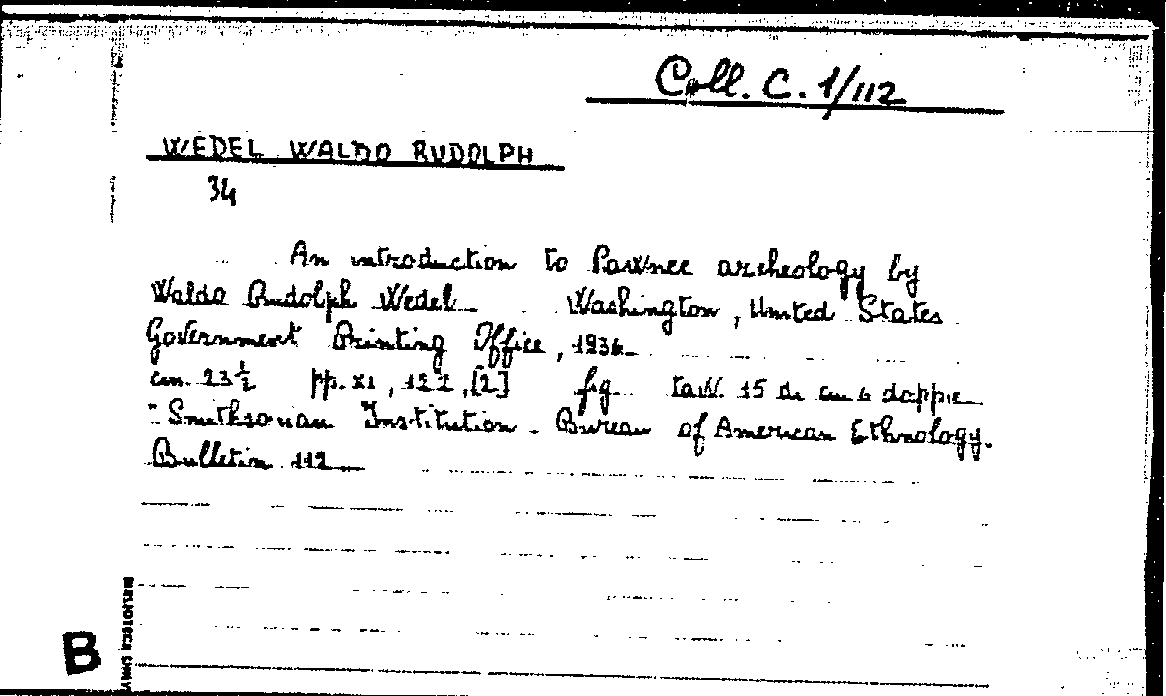 Coll. C. 1/112
WEDEL WALDO RUDOLPH
34
An introduction to Pawnee archeology by
Waldo Rudolph Wedel Washington, United States
Government Printing Office, 1936
cm. 23 ½ pp. XI, 122, [2] fig tavv. 15 di cui 6 doppie
"Smithsonian Institution - Bureau of American Ethnology.
Bulletin 112
B